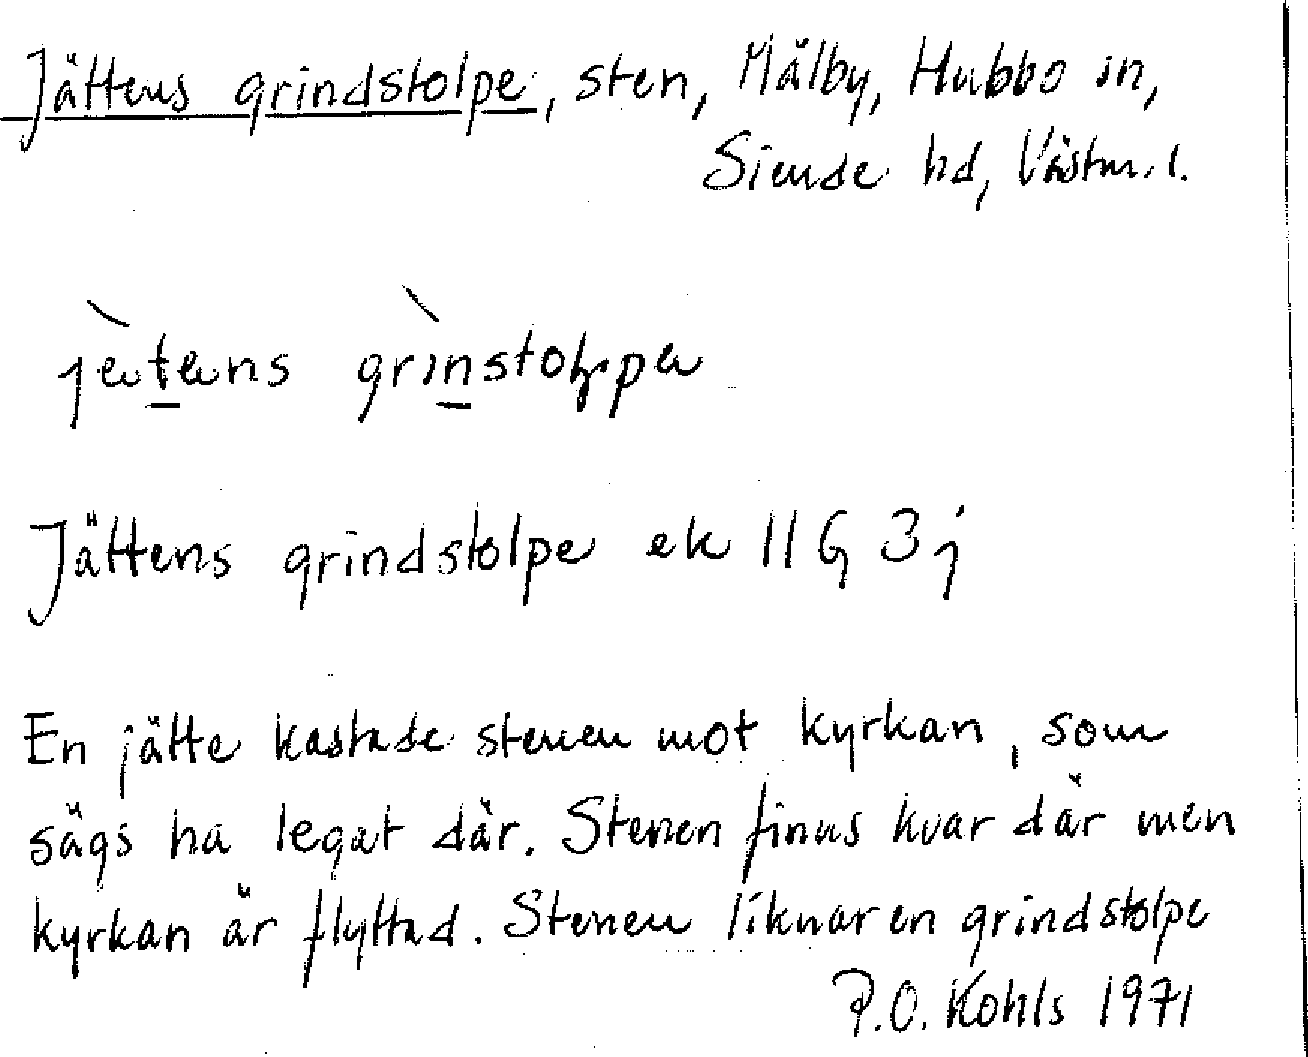 Jättens grindstolpe, sten, Målby, Hubbo sn,
Siende hd, Västm. l.
jätens grinstolpa
Jättens grindstolpe ek 11G 3j
En jätte kastade stenen mot kyrkan, som
sägs ha legat där. Stenen finns kvar där men
kyrkan är flyttad. Stenen liknar en grindstolpe
P.O. Kohls 1971